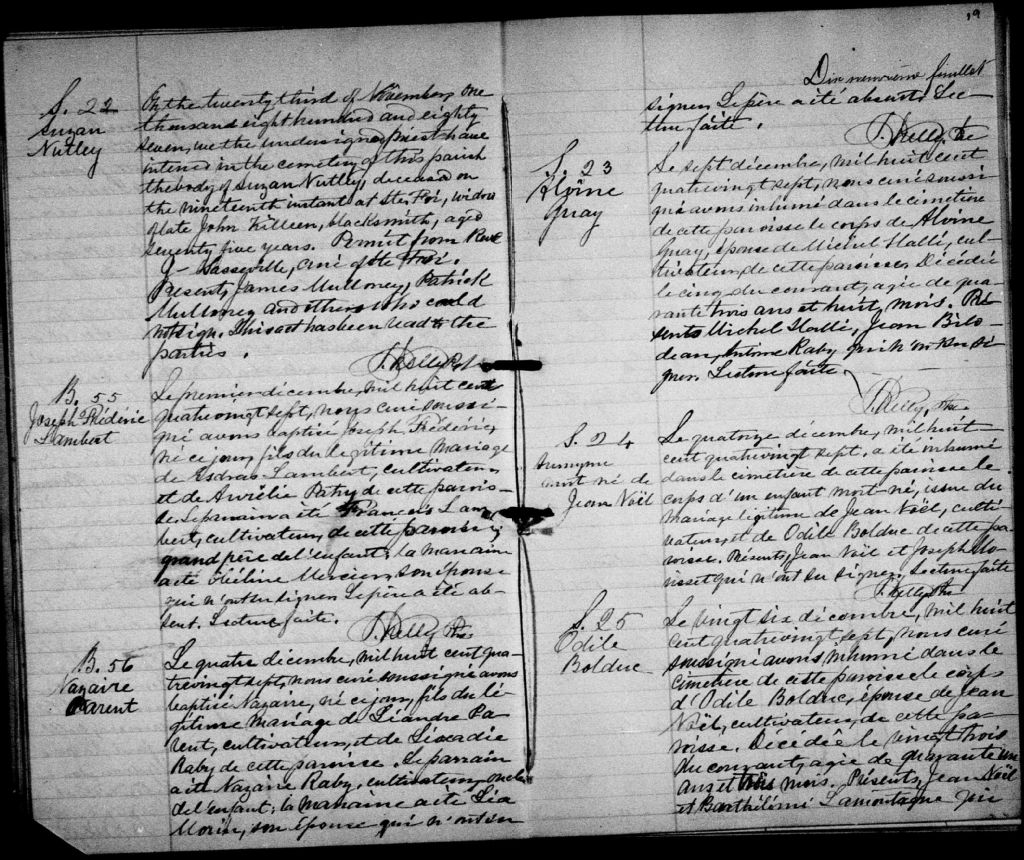 S. 22
Suzan
Nutley
On the twenty third of November, one
thousand eight hundred and eighty
seven, we the undersigned Priest have
interred in the cemetery of this parish
the body of Suzan Nutley, deceased on
the nineteenth instant at Ste Foi, widow
of late John Killeen, blacksmith, aged
seventy five years. Permit from Revd
J- Sasseville, Curé of Ste Foi.
Present, James Mulloney, Patrick
Mulloney and others who could
not sign. This act has been read to the
parties.
J. Kelly Ptre
B. 55
Joseph Frédéric
Lambert
Le premier décembre, mil huit cent
quatrevingt sept, nous curé soussi-
gné avons baptisé Joseph Frédéric,
né ce jour, fils du légitime mariage
de Esdras Lambert, cultivateur,
et de Aurélie Patry de cette parois-
se. Le parrain a été François Lam-
bert, cultivateur, de cette paroisse,
grand père de l'enfant; la marraine
a été Héline Mercier, son épouse
qui n'ont su signer. Le père a été ab-
sent. Lecture faite.
J. Kelly Ptre
B. 56
Nazaire
Parent
Le quatre décembre, mil huit cent qua-
trevingt sept, nous curé soussigné avons
baptisé Nazaire, né ce jour, fils du lé-
gitime mariage de Liandre Pa-
rent, cultivateur, et de Léocadie
Raby de cette paroisse. Le parrain
a été Nazaire Raby, cultivateur, oncle
de l'enfant; la marraine a été Léa
Morin, son épouse qui n'ont su
19
Dix neuvième feuillet
signer. Le père a été absent. Lec-
ture faite.
J. Kelly, Ptre
S. 23
Alvine
Guay
Le sept décembre, mil huit cent
quatrevingt sept, nous curé soussi-
gné avons inhumé dans le cimetière
de cette paroisse le corps de Alvine
Guay, épouse de Michel Hallé, cul-
tivateur, de cette paroisse. Décédée
le cinq du courant, agée de qua-
rante trois ans et huit mois. Pré-
sents Michel Hallé, Jean Bilo-
deau, Antime Raby qui n'ont su si-
gner. Lecture faite.
J. Kelly, Ptre
S. 24
Anonyme
mort né de
Jean Noël
Le quatorze décembre, mil huit
cent quatrevingt sept, a été inhumé
dans le cimetière de cette paroisse le
corps d'un enfant mort-né, issue du
mariage légitime de Jean Noël, culti-
vateur, et de Odile Bolduc de cette pa-
roisse. Présents, Jean Noël et Joseph Mo-
risset qui n'ont su signer. Lecture faite
J. Kelly Ptre
S. 25
Odile
Bolduc
Le vingt six décembre, mil huit
cent quatrevingt sept, nous curé
soussigné avons inhumé dans le
cimetière de cette paroisse le corps
d'Odile Bolduc, épouse de Jean
Noël, cultivateur, de cette pa-
roisse. Décédée le vingt trois
du courant, agée de quarante un
ans et trois mois. Présents, Jean Noël
et Barthélémi Lamontagne qui